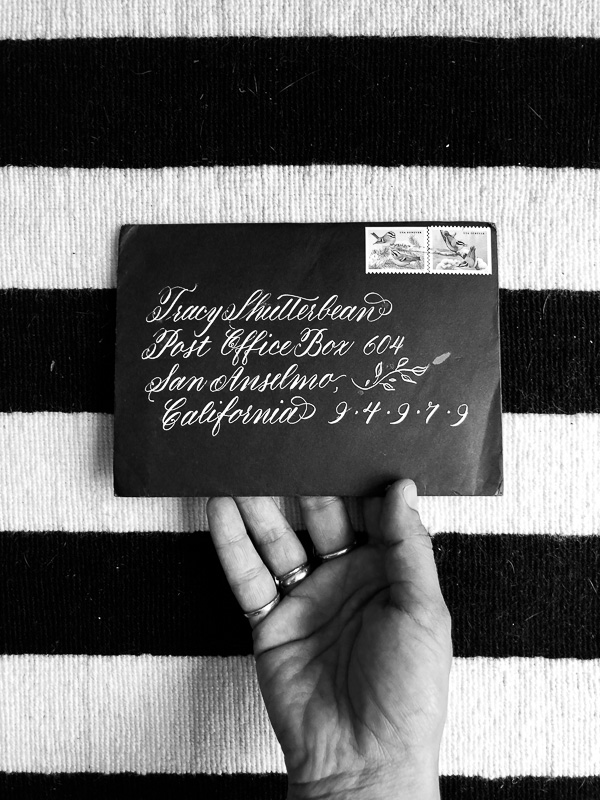 Tracy Shutterbean
Post Office Box 604
San Anselmo,
California 9·4·9·7·9